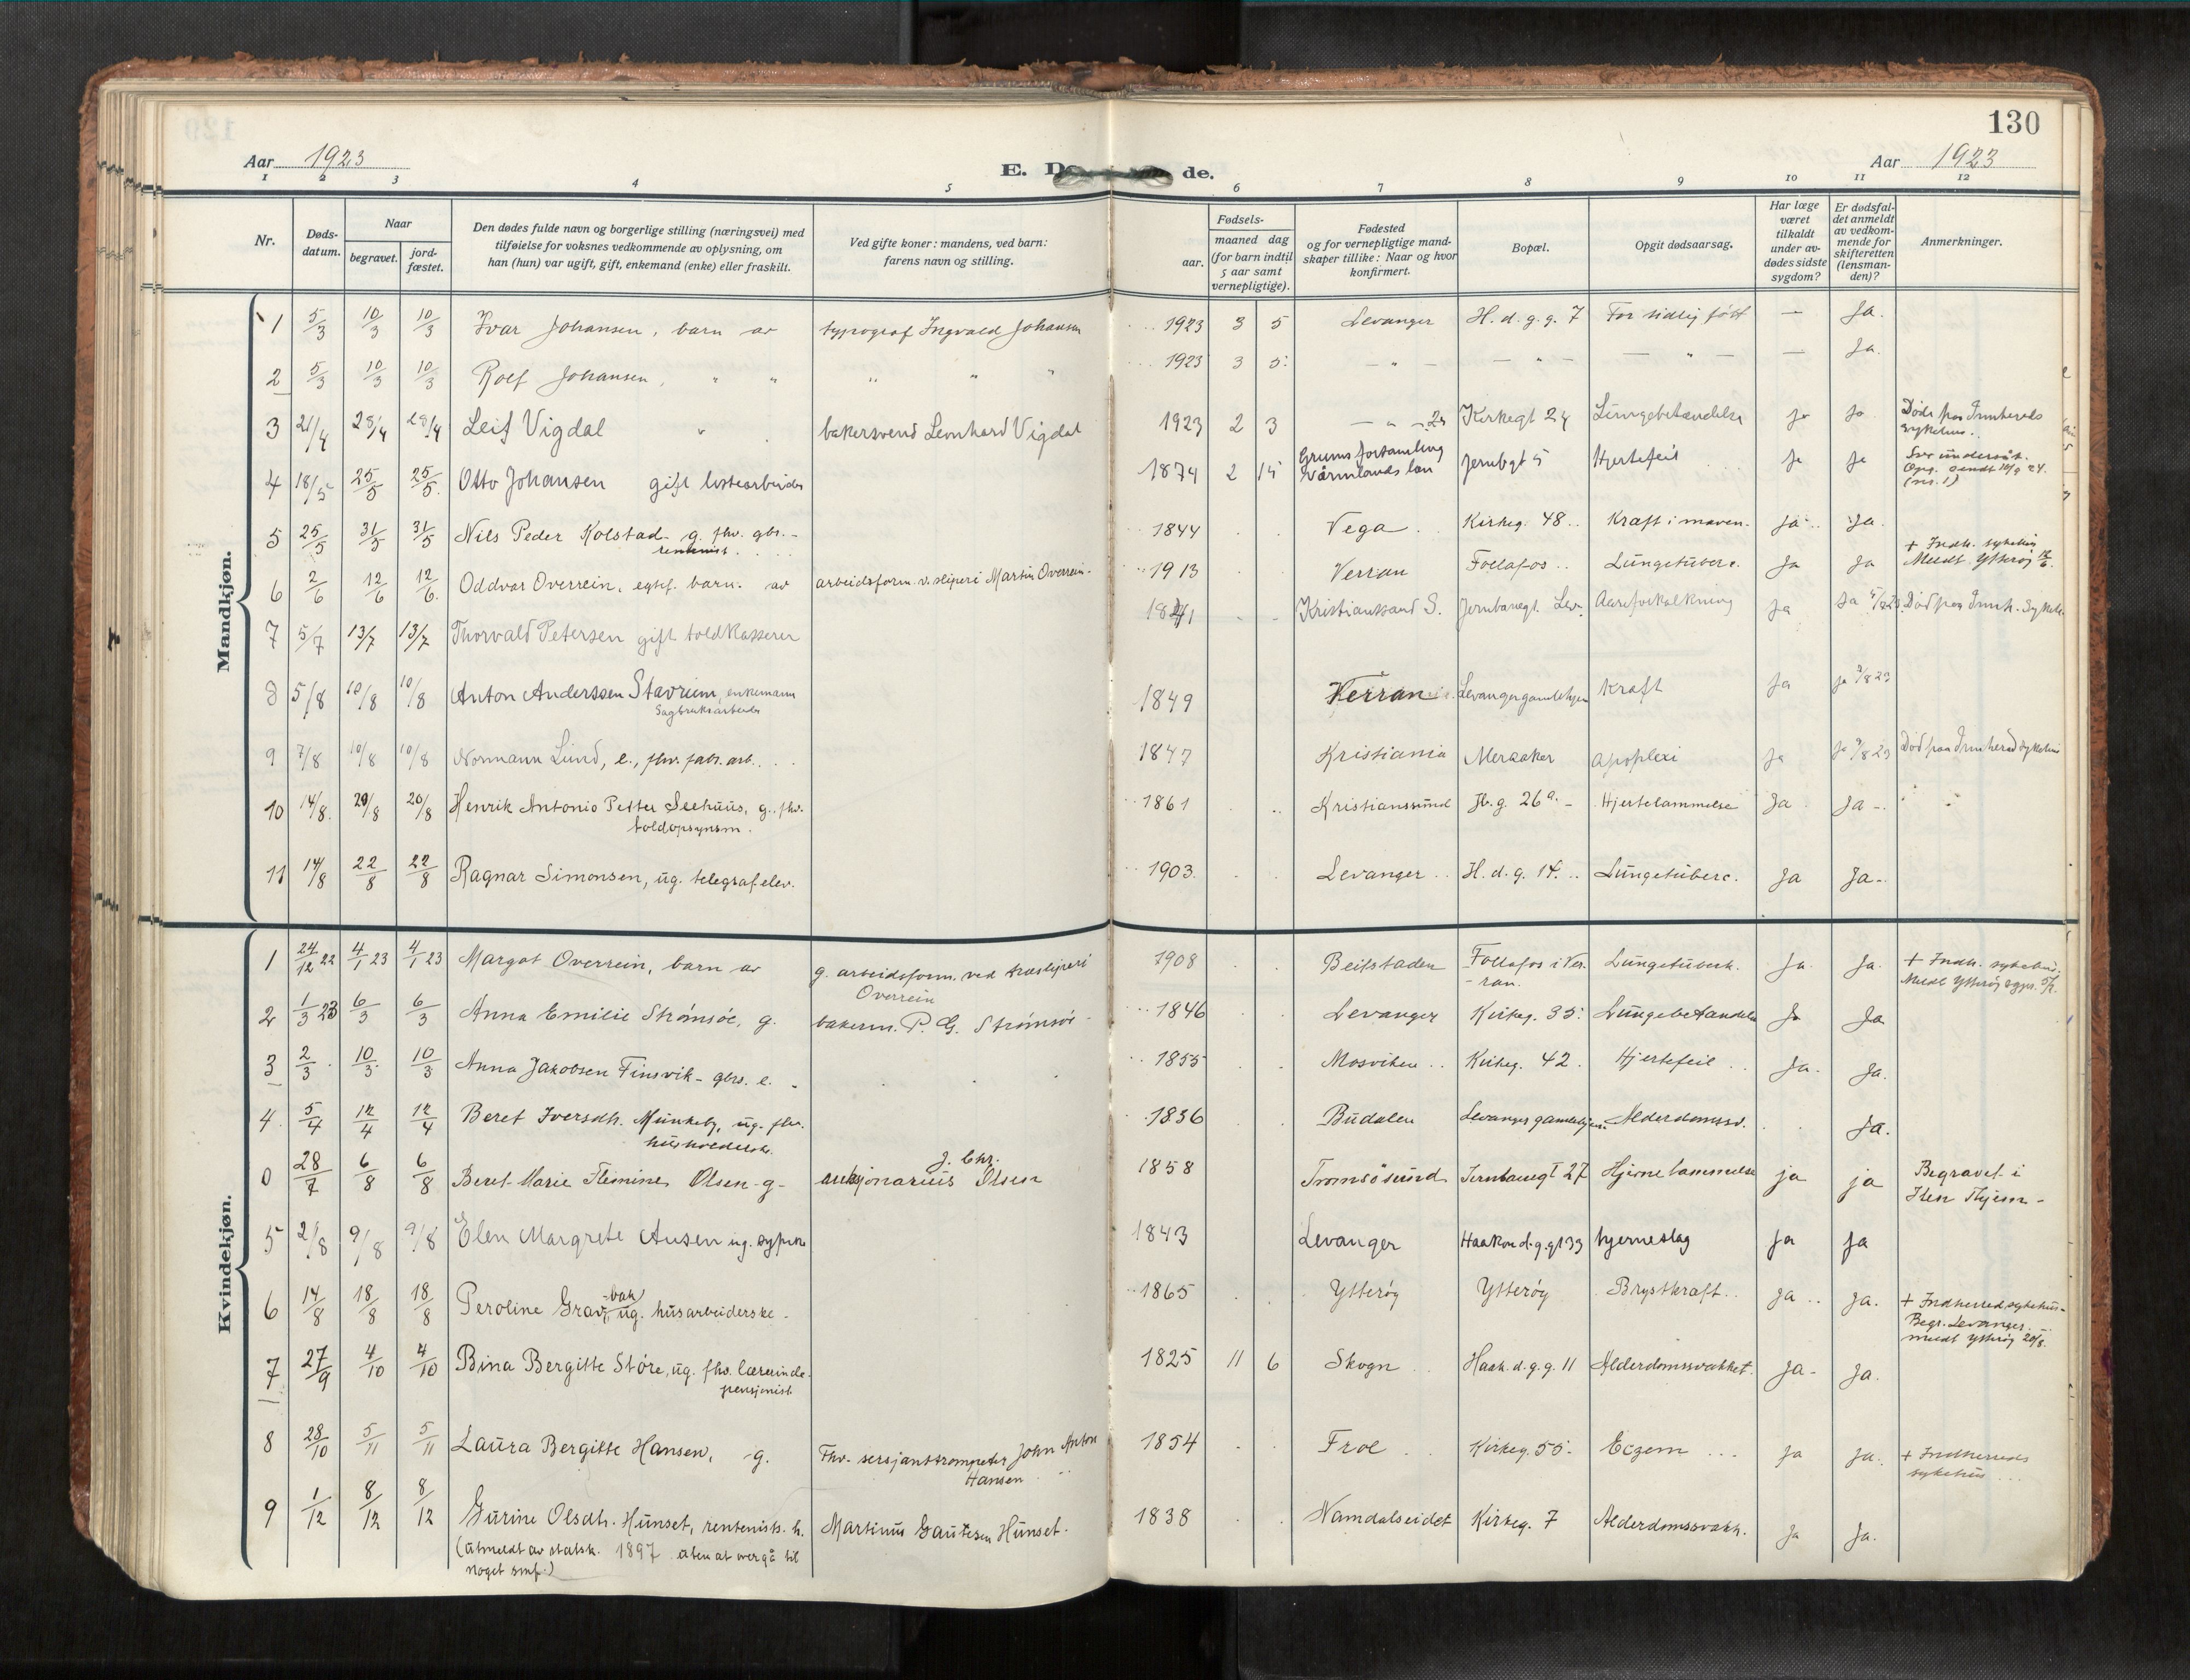 130
Aar 1923
E. D de.
Aar 1923
1 2 3 4 5 6 7 8 9 10 11 12
Nr.
Døds-
datum.
Naar
begravet.
jord-
fæstet.
Den dødes fulde navn og borgerlige stilling (næringsvei) med
tilføielse for voksnes vedkommende av oplysning, om
han (hun) var ugift, gift, enkemand (enke) eller fraskilt.
Ved gifte koner: mandens, ved barn:
farens navn og stilling.
Fødsels-
aar.
maaned dag
(for barn indtil
5 aar samt
vernepligtige).
Fødested
og for vernepligtige mand-
skaper tillike: Naar og hvor
konfirmert.
Bopæl.
Opgit dødsaarsag.
Har læge
været
tilkaldt
under av-
dødes sidste
sygdom?
Er dødsfal-
det anmeldt
av vedkom-
mende for
skifteretten
(lensman-
den)?
Anmerkninger.
Mandkjøn.
1 5/3 10/3 10/3 Ivar Johansen, barn av typograf Ingvald Johansen 1923 3 5 Levanger H. d. g. g. 7 For tidlig født — Ja.
2 5/3 10/3 10/3 Rolf Johansen, " " " " " 1923 3 5. — " — — " — — " — — Ja.
3 21/4 28/4 28/4 Leif Vigdal " bakersvend Leonhard Vigdal 1923 2 3 — " — Kirkegt 24 Lungebetændelse Ja Ja Døde paa Innherreds
sykehus.
4 18/5 25/5 25/5. Otto Johansen gift 1874 2 15 Grums forsamling
Värmlands län Jernbgt 5 Hjertefeil Ja Ja
(nr. 1)
5 25/5 31/5 31/5 Nils Peder Kolstad - g. fhv. gbr. -
rentenist 1844 Vega Kirkeg. 48 Kræft i maven. Ja Ja.
6 2/6 12/6 12/6. Oddvar Overrein, egtef. barn av arbeidsform. v. sliperi Martin Overrein. 1913 Verran Follafos Lungetuberc. Ja Ja + Indh. sykehus
Meldt Ytterøy
7 5/7 13/7 13/7 Thorvald Petersen gift toldkasserer 1841 Kristianssand S. Jernbanegt. Lev. Aareforkalkning Ja Ja Død paa Innh. Sykeh.
8 5/8 10/8 10/8 Anton Anderssen Stavrum, enkemann
Sagbruksarbeider 1849 Verran Levangergamlehjem Kræft Ja Ja 9/8 23
9 7/8 10/8 10/8 Normann Lund, e., fhv. fabr. arb. 1847 Kristiania Meraaker Apoplexi Ja Ja 9/8 23 Død paa Innherred sykehus
10 14/8. 20/8 20/8 Henrik Antonio Petter Seehuus, g. fhv.
toldopsynsm. 1861 Kristianssund Jb. g. 26 a. - Hjertelammelse Ja Ja -.
11 14/8 22/8 22/8 Ragnar Simonsen, ug. telegrafelev. 1903 Levanger H. d. g. 14. Lungetuberc. Ja Ja -
Kvindekjøn.
1 24/12 22 4/1 23 4/1 23 Margot Overrein, barn av g. arbeidsform. ved træsliperi
Overrein 1908 Beitstaden Follafos i Ver-
ran. Lungetuberk. Ja. Ja. + Indh. sykehus.
2 1/3 23 6/3 6/3 Anna Emilie Strømsøe, g. bakerm. P. G. Strømsøe 1846 Levanger Kirkeg. 35. Lungebetændelse Ja Ja
3 2/3 10/3 10/3 Anna Jakobsen Finsvik - gbr. e. - 1855 Mosviken Kirkeg. 42. Hjertefeil Ja. Ja.
4. 5/4 12/4 12/4 Beret Iversdtr. Munkeby, ug. fhv.
husholderske. 1836 Budalen Levanger gamlehjem. Alderdomssv. Ja.
0 28/7 6/8 6/8 Beret Marie Flemine Olsen -g- auksjonarius J. Chr. Olsen 1858 Tromsøsund Jernbanegt 27 Hjernelammelse ja ja Begravet i
5 2/8 9/8 9/8 Elen Margrete Ausen ug. sypike 1843 Levanger Haakon d. g. gt 33 hjerneslag Ja Ja
6 14/8 18/8 18/8 Peroline Gravbak, ug. husarbeiderske. 1865 Ytterøy Ytterøy Brystkræft. Ja Ja. + Indherred sykehus.
Begr. Levanger.
meldt Ytterøy 20/8.
7 27/9 4/10 4/10 Bina Bergitte Støre, ug. fhv. lærerinde.
pensjonist 1825 11 6 Skogn Haak. d. g. g. 11 Alderdomssvakhet. Ja - Ja.
8 28/10 5/11 5/11 Laura Bergitte Hansen, g. Fhv. sersjanttrompeter John Anton
Hansen 1854 Frol Kirkeg. 55. Eczem Ja Ja. + Indherreds
sykehus
9 1/12 8/12 8/12 Gurine Olsdtr. Hunset, rentenists. h.
(Utmeldt av statsk. 1897 uten at overgå til
noget smf.) Martinus Gautesen Hunset. 1838 Namdalseidet Kirkeg. 7 Alderdomssvakh. Ja Ja.